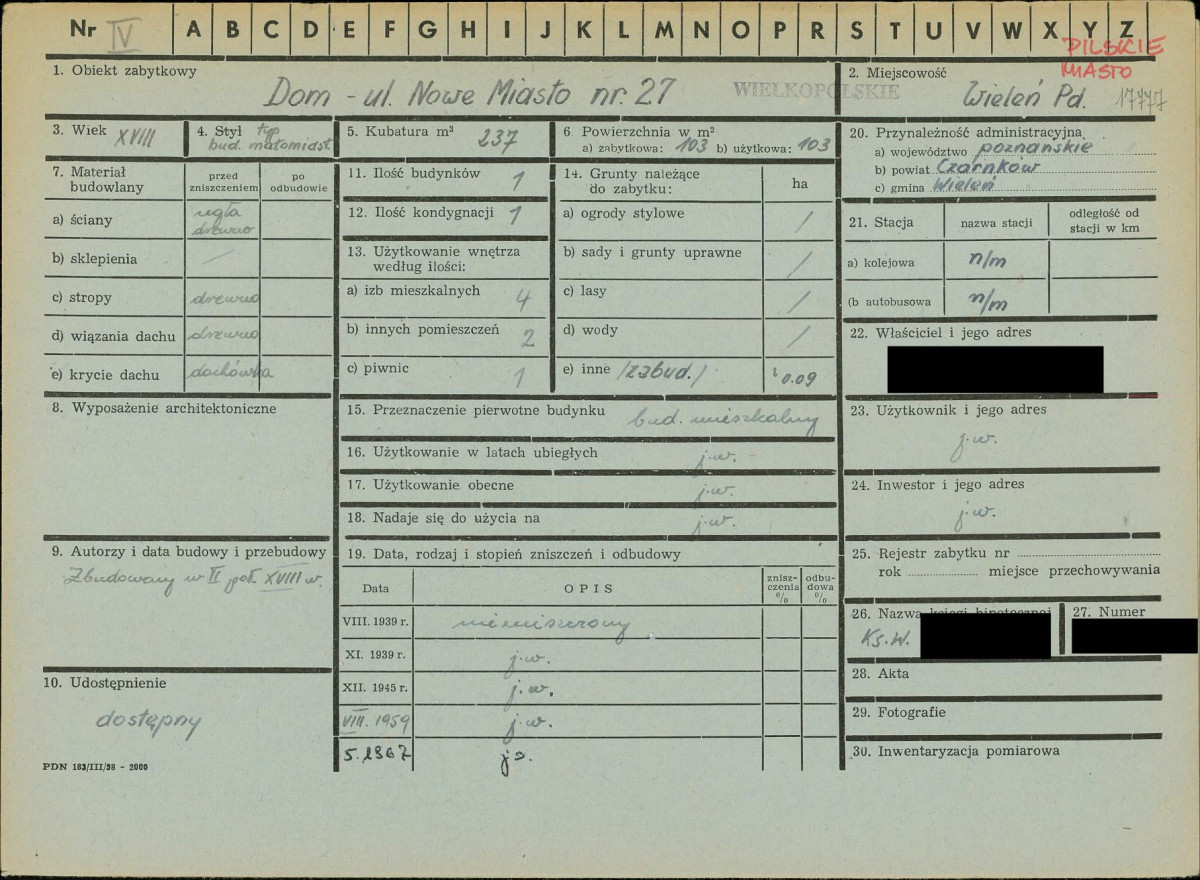 Nr IV A B C D E F G H I J K L M N O P R S T U V W X Y Z
PILSKIE
MIASTO
1. Obiekt zabytkowy
Dom - ul. Nowe Miasto nr. 27
WIELKOPOLSKIE
2. Miejscowość
Wieleń Pd. 17777
3. Wiek XVIII
4. Styl typ
bud. małomiast.
5. Kubatura m³ 237
6 Powierzchnia w m²
a) zabytkowa: 103 b) użytkowa: 103
7. Materiał
budowlany
przed
zniszczeniem
po
odbudowie
a) ściany
cegła
drewno
b) sklepienia /
c) stropy drewno
d) wiązania dachu drewno
e) krycie dachu dachówka
8. Wyposażenie architektoniczne
9. Autorzy i data budowy i przebudowy
Zbudowany w II poł. XVIII w.
10. Udostępnienie
dostępny
PDN 183/III/58 - 2000
11. Ilość budynków 1
12. Ilość kondygnacji 1
13. Użytkowanie wnętrza
według ilości:
a) izb mieszkalnych 4
b) innych pomieszczeń 2
c) piwnic 1
14. Grunty należące
do zabytku:
ha
a) ogrody stylowe /
b) sady i grunty uprawne /
c) lasy /
d) wody /
e) inne /zabud./ 0.09
15. Przeznaczenie pierwotne budynku bud. mieszkalny
16. Użytkowanie w latach ubiegłych j.w.
17. Użytkowanie obecne j.w.
18. Nadaje się do użycia na j.w.
19. Data, rodzaj i stopień zniszczeń i odbudowy
Data
OPIS
znisz-
czenia
%
odbu-
dowa
%
VIII. 1939 r. niezniszczony
XI. 1939 r. j.w.
XII. 1945 r. j.w.
VIII. 1959 j.w.
5. 1967 j.w.
20. Przynależność administracyjna
a) województwo poznańskie
b) powiat Czarnków
c) gmina Wieleń
21. Stacja
nazwa stacji
odległość od
stacji w km
a) kolejowa n/m
(b autobusowa n/m
22. Właściciel i jego adres
23. Użytkownik i jego adres
j.w.
24. Inwestor i jego adres
j.w.
25. Rejestr zabytku nr
rok miejsce przechowywania
26. Nazwa księgi hipotecznej
Ks.W.
27. Numer
28. Akta
29. Fotografie
30. Inwentaryzacja pomiarowa